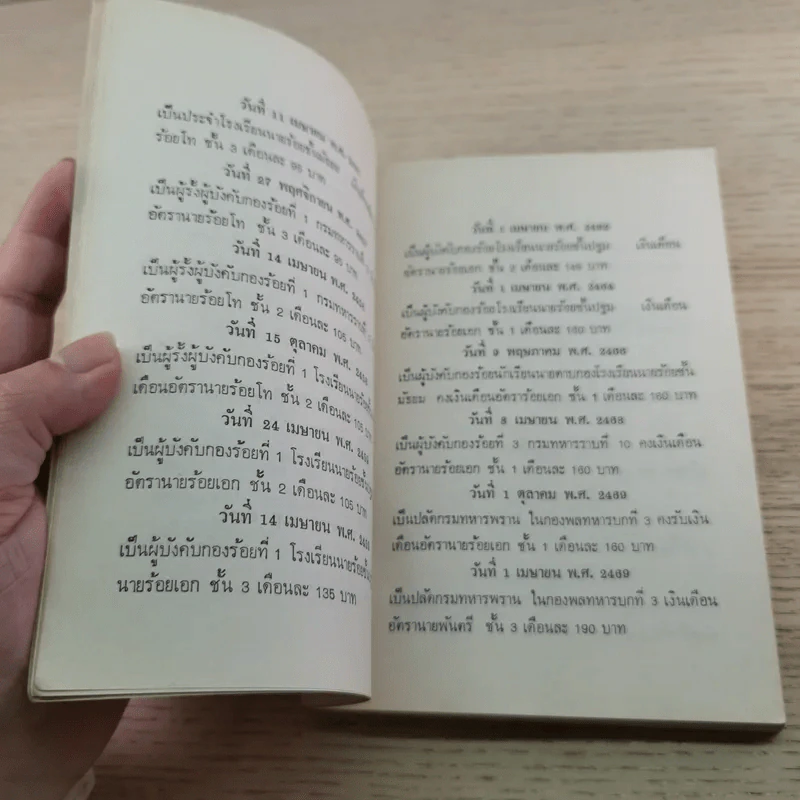 วันที่ 11 เมษายน พ.ศ.
เป็นประจำโรงเรียนนายร้อยชั้นมัธยม
ร้อยโท ชั้น 3 เดือนละ 95 บาท
วันที่ 27 พฤศจิกายน พ.ศ.
เป็นผู้รั้งผู้บังคับกองร้อยที่ 1 กรมทหารราบที่
อัตรานายร้อยโท ชั้น 3 เดือนละ 95 บาท
วันที่ 14 เมษายน พ.ศ.
เป็นผู้รั้งผู้บังคับกองร้อยที่ 1 กรมทหารราบที่
อัตรานายร้อยโท ชั้น 2 เดือนละ 105 บาท
วันที่ 15 ตุลาคม พ.ศ.
เป็นผู้รั้งผู้บังคับกองร้อยที่ 1 โรงเรียนนายร้อยชั้น
เดือนอัตรานายร้อยโท ชั้น 2 เดือนละ 105 บาท
วันที่ 24 เมษายน พ.ศ.
เป็นผู้บังคับกองร้อยที่ 1 โรงเรียนนายร้อยชั้น
อัตรานายร้อยเอก ชั้น 2 เดือนละ 105 บาท
วันที่ 14 เมษายน พ.ศ.
เป็นผู้บังคับกองร้อยที่ 1 โรงเรียนนายร้อยชั้น
นายร้อยเอก ชั้น 3 เดือนละ 135 บาท
วันที่ 1 เมษายน พ.ศ.
เป็นผู้บังคับกองร้อยโรงเรียนนายร้อยชั้นปฐม เงินเดือน
อัตรานายร้อยเอก ชั้น 2 เดือนละ บาท
วันที่ 1 เมษายน พ.ศ.
เป็นผู้บังคับกองร้อยโรงเรียนนายร้อยชั้นปฐม เงินเดือน
อัตรานายร้อยเอก ชั้น 1 เดือนละ 160 บาท
วันที่ 9 พฤษภาคม พ.ศ.
เป็นผู้บังคับกองร้อยนักเรียนนายดาบกองโรงเรียนนายร้อยชั้น
มัธยม คงเงินเดือนอัตราร้อยเอก ชั้น 1 เดือนละ 160 บาท
วันที่ 8 เมษายน พ.ศ. 2468
เป็นผู้บังคับกองร้อยที่ 3 กรมทหารราบที่ 10 คงเงินเดือน
อัตรานายร้อยเอก ชั้น 1 เดือนละ 160 บาท
วันที่ 1 ตุลาคม พ.ศ. 2469
เป็นปลัดกรมทหารพราน ในกองพลทหารบกที่ 3 คงรับเงิน
เดือนอัตรานายร้อยเอก ชั้น 1 เดือนละ 160 บาท
วันที่ 1 เมษายน พ.ศ. 2469
เป็นปลัดกรมทหารพราน ในกองพลทหารบกที่ 3 เงินเดือน
อัตรานายพันตรี ชั้น 3 เดือนละ 190 บาท